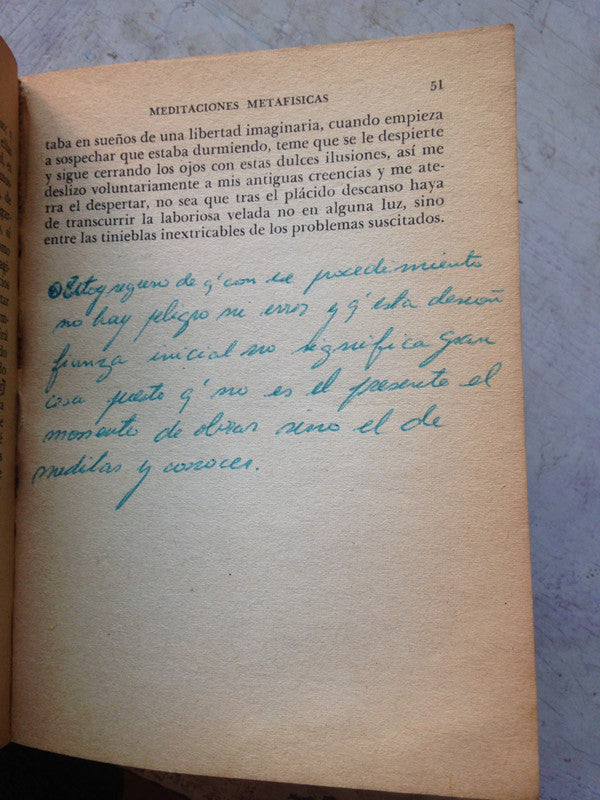 51
MEDITACIONES METAFISICAS
taba en sueños de una libertad imaginaria, cuando empieza
a sospechar que estaba durmiendo, teme que se le despierte
y sigue cerrando los ojos con estas dulces ilusiones, así me
deslizo voluntariamente a mis antiguas creencias y me ate-
rra el despertar, no sea que tras el plácido descanso haya
de transcurrir la laboriosa velada no en alguna luz, sino
entre las tinieblas inextricables de los problemas suscitados.
Estoy seguro de q' con ese procedimiento
no hay peligro ni error y q' esta descon
fianza inicial no significa gran
cosa puesto q' no es el presente el
momento de obrar sino el de
meditar y conocer.